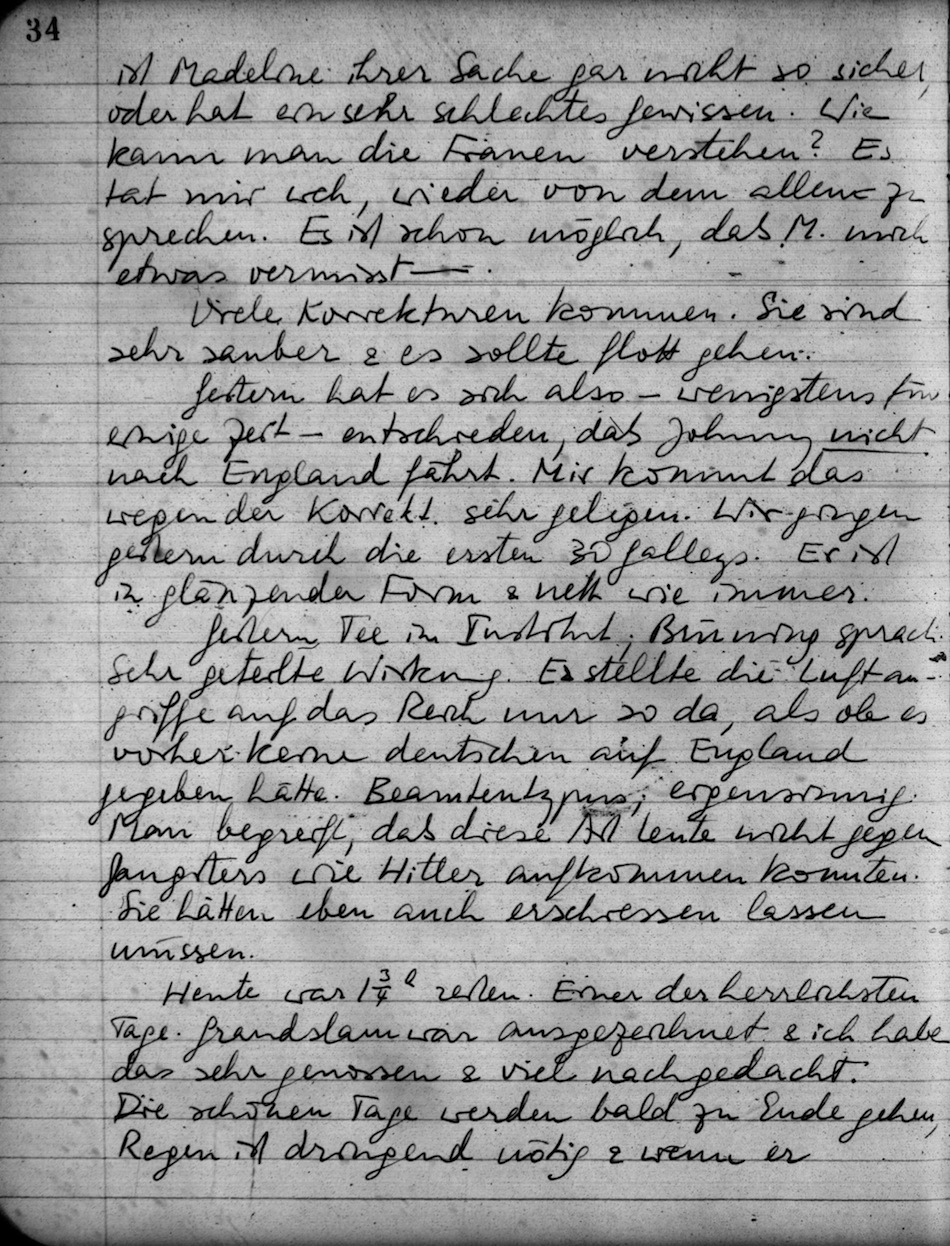 34
ist Madeline ihrer Sache gar nicht so sicher,
oder hat ein sehr schlechtes Gewissen. Wie
kann man die Frauen verstehen? Es
tat mir weh, wieder von dem allem zu
sprechen. Es ist schon möglich, dass M. mich
etwas vermisst —.
Viele Korrekturen kommen. Sie sind
sehr sauber & es sollte flott gehen.
Gestern hat es sich also – wenigstens für
einige Zeit – entschieden, dass Johnny nicht
nach England fährt. Mir kommt das
wegen der Korrekt. sehr gelegen. Wir gingen
gestern durch die ersten 30 Galleys. Er ist
in glänzender Form & nett wie immer.
Gestern Tee im Institut; Brüning sprach.
Sehr geteilte Wirkung. Er stellte die Luftan-
griffe auf das Reich nur so da, als ob es
vorher keine deutschen auf England
gegeben hätte. Beamtentypus; eigensinnig.
Man begreift, dass diese Art Leute nicht gegen
Gangsters wie Hitler aufkommen konnten.
Sie hätten eben auch erschiessen lassen
müssen.
Heute war 1 3/4 h reiten. Einer der herrlichsten
Tage. Grandslam war ausgezeichnet & ich habe
das sehr genossen & viel nachgedacht.
Die schönen Tage werden bald zu Ende gehen,
Regen ist dringend nötig & wenn er